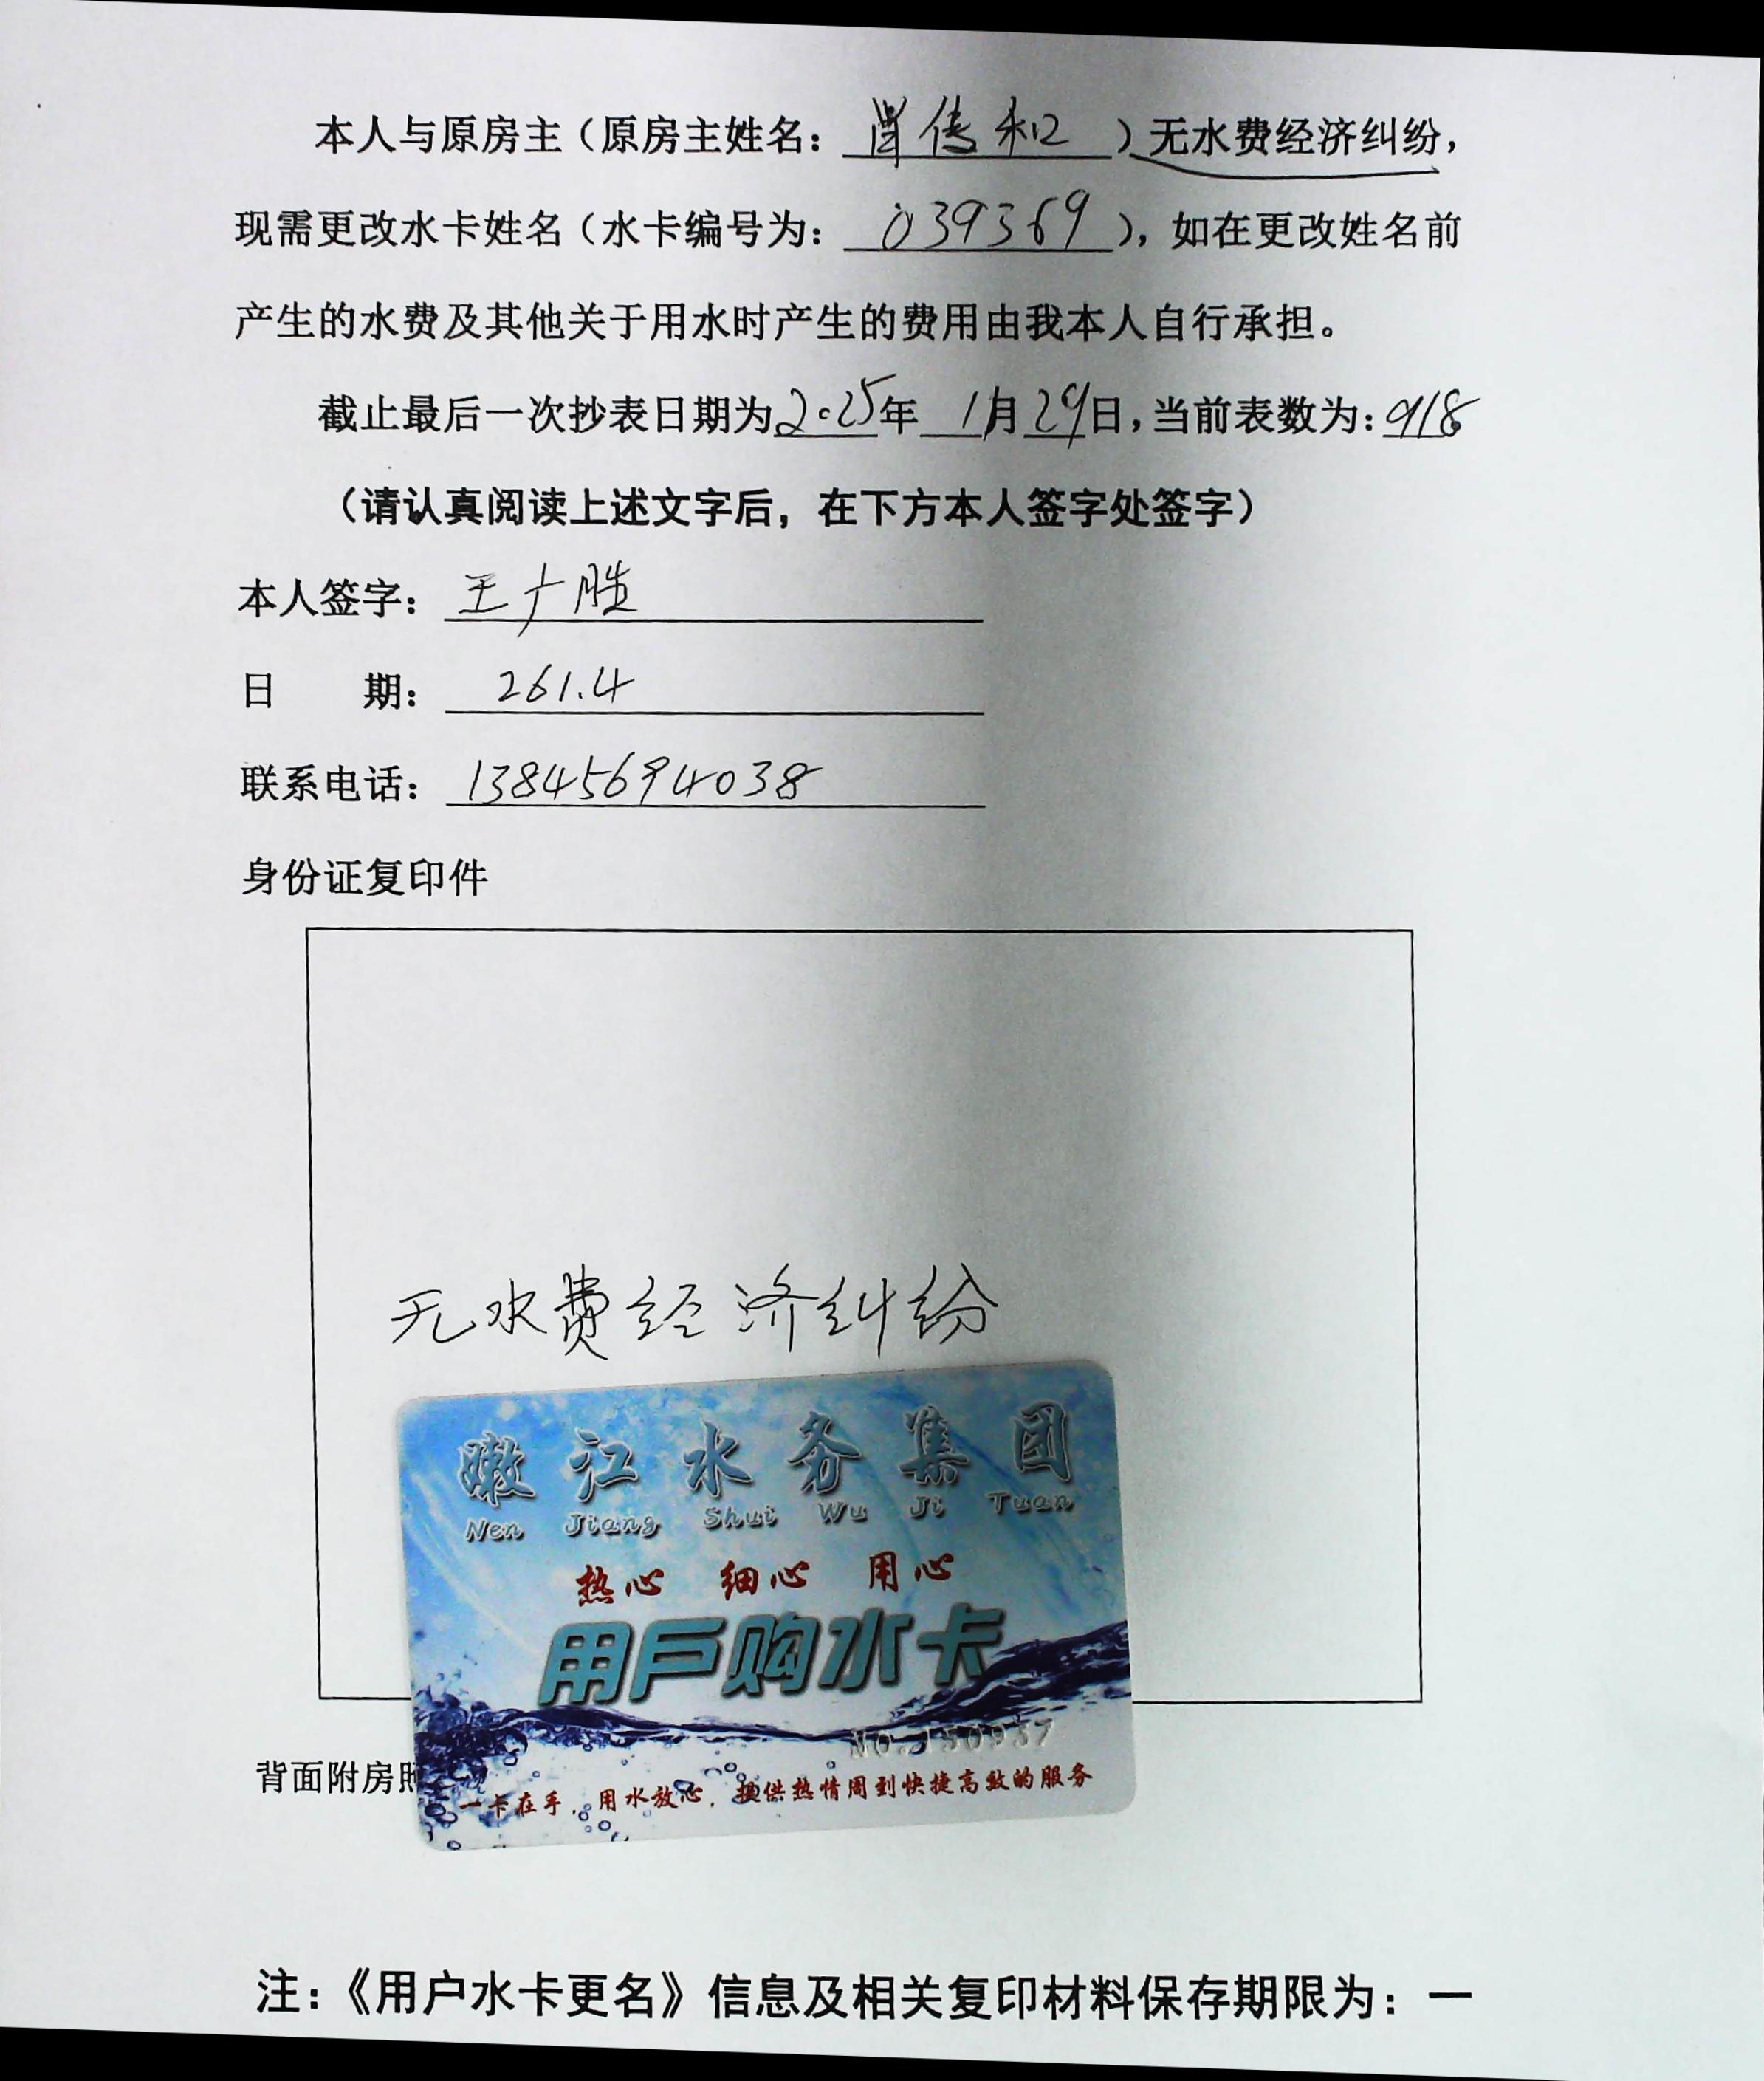 本人与原房主（原房主姓名：曾传和）无水费经济纠纷，
现需更改水卡姓名（水卡编号为：039369），如在更改姓名前
产生的水费及其他关于用水时产生的费用由我本人自行承担。
截止最后一次抄表日期为2025年1月29日，当前表数为：918
（请认真阅读上述文字后，在下方本人签字处签字）
本人签字：王广胜
日 期：261.4
联系电话：13845694038
身份证复印件
无水费经济纠纷
嫩江水务集团
Nen Jiang Shui Wu Ji Tuan
热心 细心 用心
用戶购水卡
NO.150957
背面附房照
一卡在手，用水放心，提供热情周到快捷高效的服务
注：《用户水卡更名》信息及相关复印材料保存期限为：一